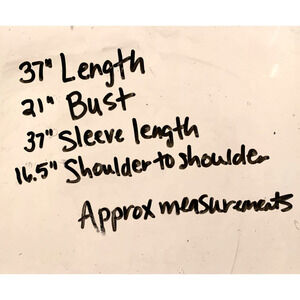 37" Length
21" Bust
37" Sleeve length
16.5" Shoulder to shoulder
Approx measurements